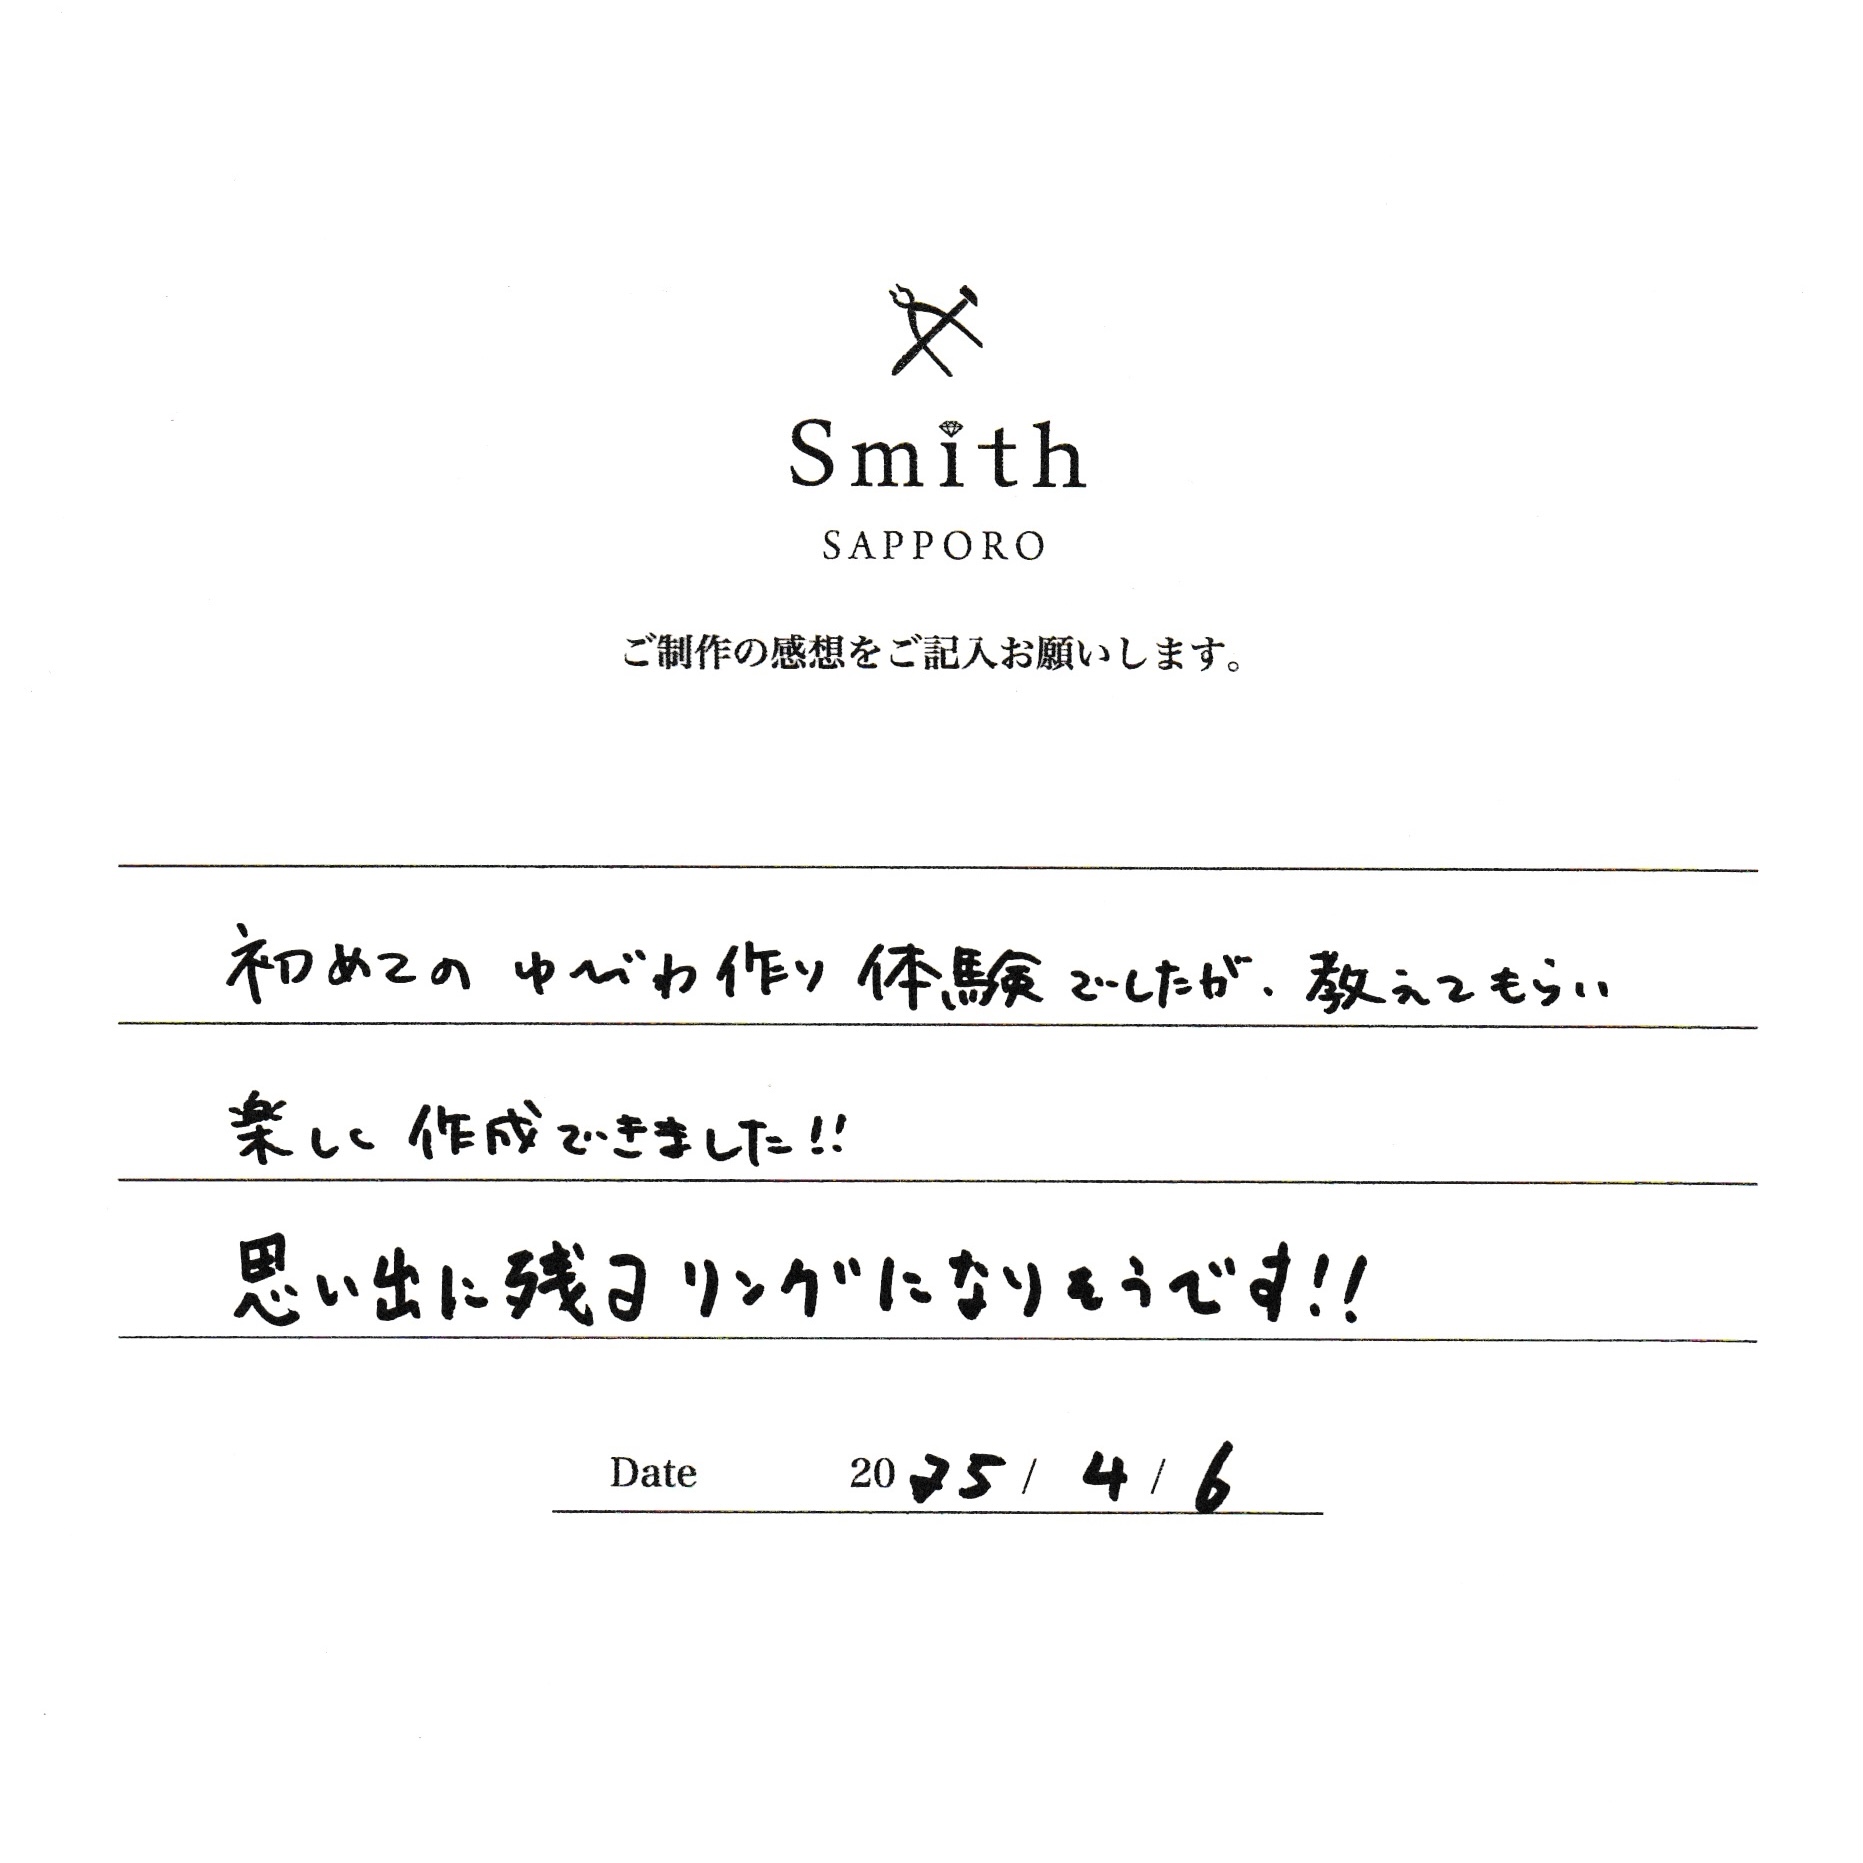 Smith
SAPPORO
ご制作の感想をご記入お願いします。
初めてのゆびわ作り体験でしたが、教えてもらい
楽しく作成できました!!
思い出に残るリングになりそうです!!
Date 2025/4/6